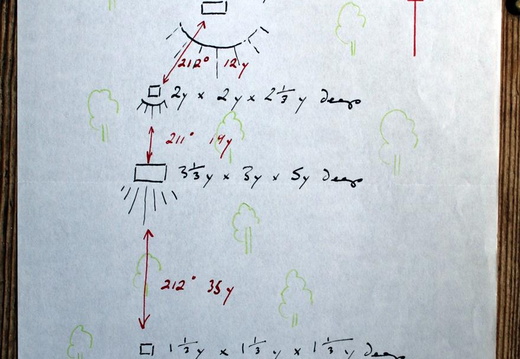 212° 12y
2y x 2y x 2 1/3 y deep
211° 19y
3 1/3 y x 3y x 5y deep
212° 35y
1 1/3 y x 1 1/3 y x 1 1/3 y deep